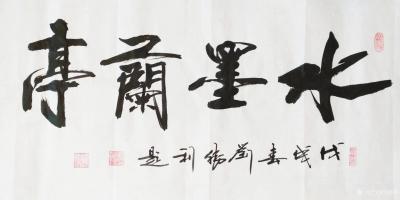 水墨蘭亭
戊戌春劉錫利題